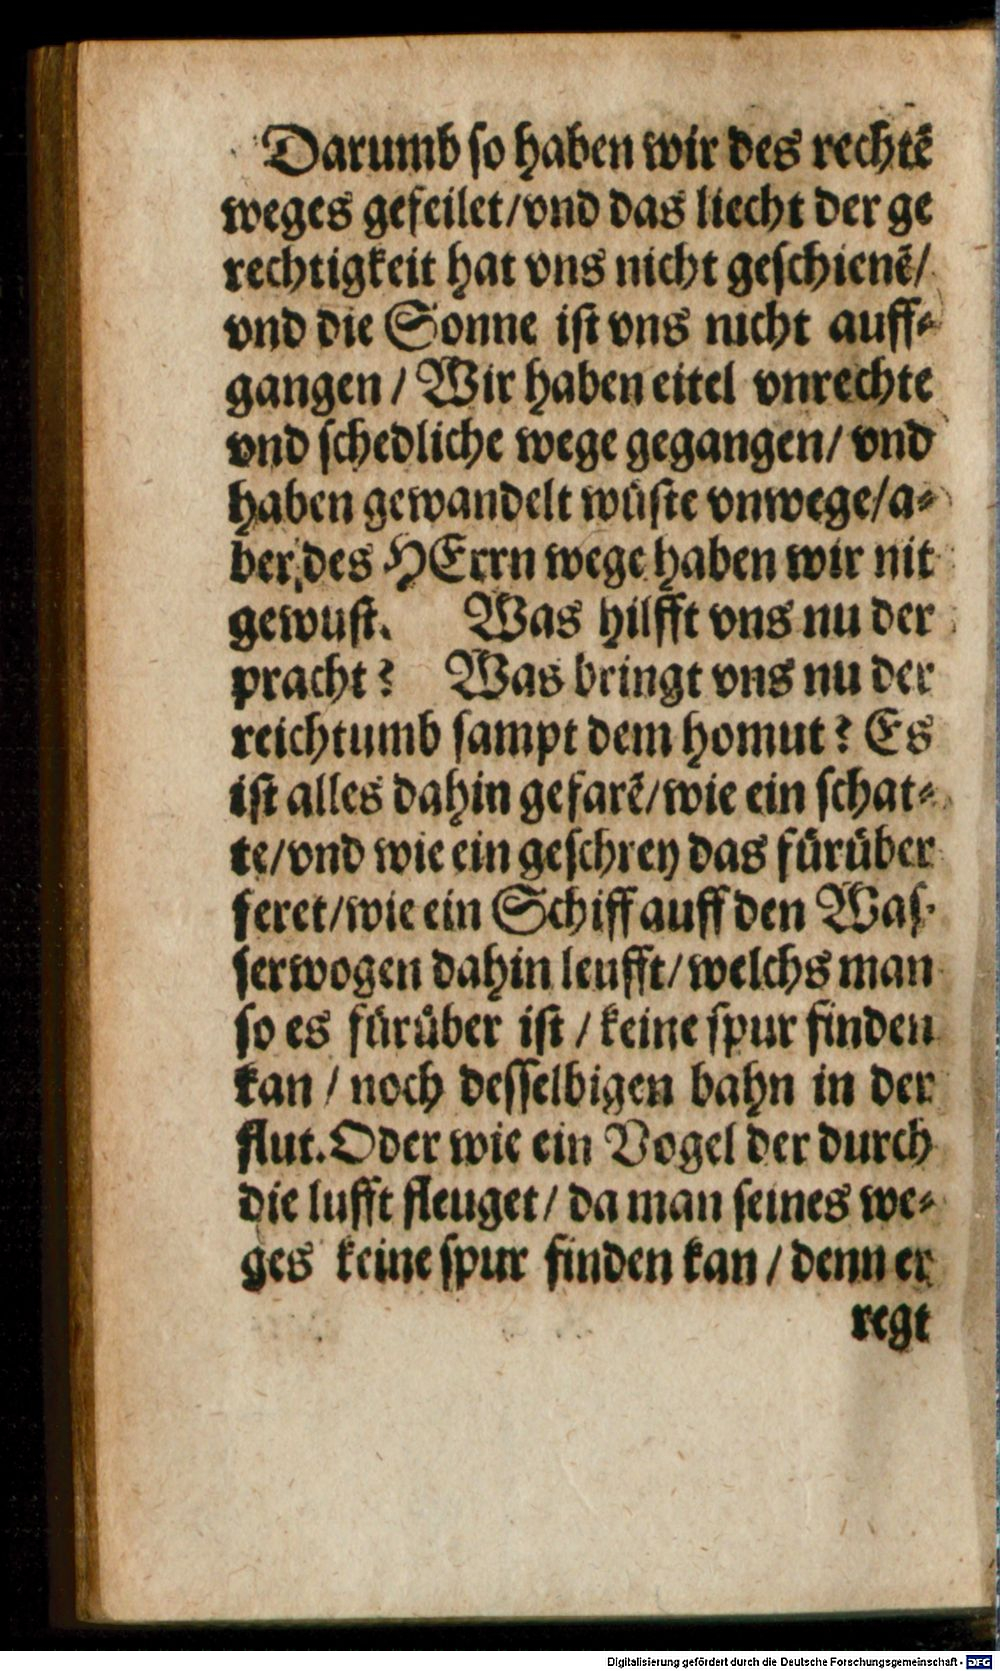 Darumb so haben wir des rechtē
weges gefeilet/vnd das liecht der ge
rechtigkeit hat vns nicht geschienē/
vnd die Sonne ist vns nicht auff-
gangen / Wir haben eitel vnrechte
vnd schedliche wege gegangen/ vnd
haben gewandelt wüste vnwege/a-
ber des HErrn wege haben wir nit
gewust. Was hilfft vns nu der
pracht? Was bringt vns nu der
reichtumb sampt dem homut? Es
ist alles dahin gefarē/wie ein schat-
te/vnd wie ein geschrey das fürüber
feret/wie ein Schiff auff den Was-
serwogen dahin leufft/welchs man
so es fürüber ist / keine spur finden
kan / noch desselbigen bahn in der
flut. Oder wie ein Vogel der durch
die lufft fleuget/ da man seines we-
ges keine spur finden kan / denn er
regt
Digitalisierung gefördert durch die Deutsche Forschungsgemeinschaft - DFG